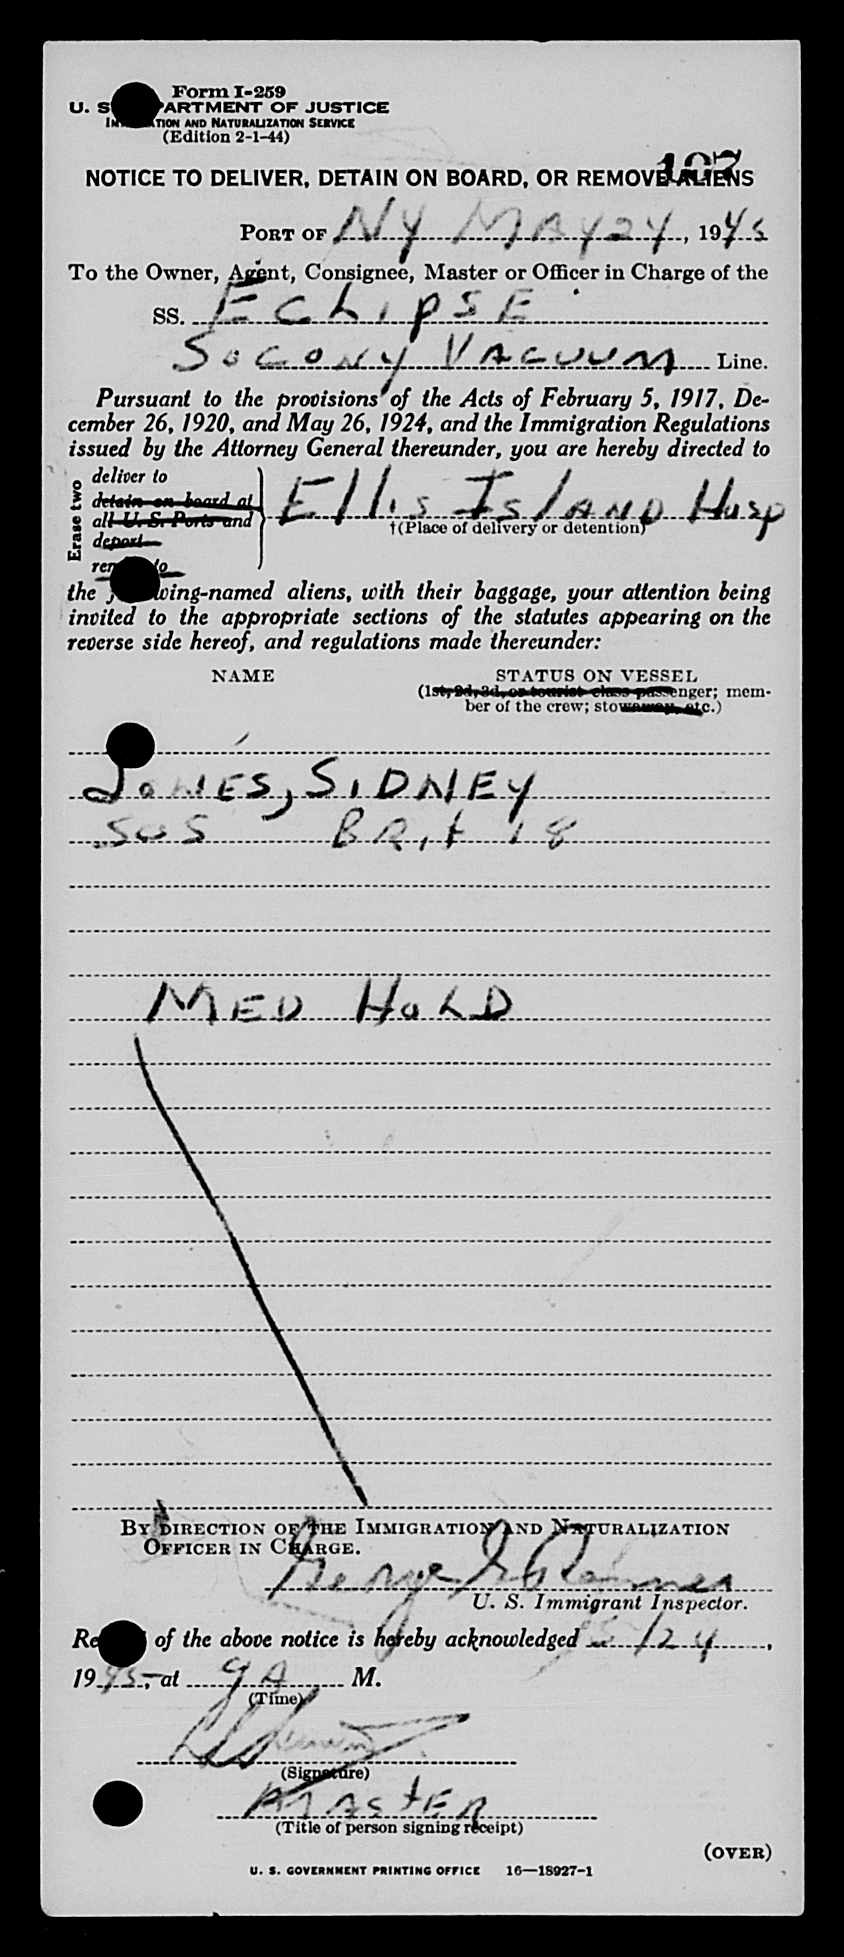 Form I-259
U. S. DEPARTMENT OF JUSTICE
IMMIGRATION AND NATURALIZATION SERVICE
(Edition 2-1-44)
197
NOTICE TO DELIVER, DETAIN ON BOARD, OR REMOVE ALIENS
PORT OF NY MAY 24, 1945
To the Owner, Agent, Consignee, Master or Officer in Charge of the
SS. ECLIPSE
SOCONY VACUUM Line.
Pursuant to the provisions of the Acts of February 5, 1917, De-
cember 26, 1920, and May 26, 1924, and the Immigration Regulations
issued by the Attorney General thereunder, you are hereby directed to
Erase two
deliver to
detain on board at
all U. S. Ports and
deport
remove to
Ellis Island Hosp
†(Place of delivery or detention)
the following-named aliens, with their baggage, your attention being
invited to the appropriate sections of the statutes appearing on the
reverse side hereof, and regulations made thereunder:
NAME STATUS ON VESSEL
(1st, 2d, 3d, or tourist class passenger; mem-
ber of the crew; stowaway, etc.)
JONES, SIDNEY
SOS BRit 18
MED HOLD
BY DIRECTION OF THE IMMIGRATION AND NATURALIZATION
OFFICER IN CHARGE.
George
U. S. Immigrant Inspector.
Receipt of the above notice is hereby acknowledged 5/24,
1945, at 9 A M.
(Time)
(Signature)
MASTER
(Title of person signing receipt)
(OVER)
U. S. GOVERNMENT PRINTING OFFICE 16—18927-1